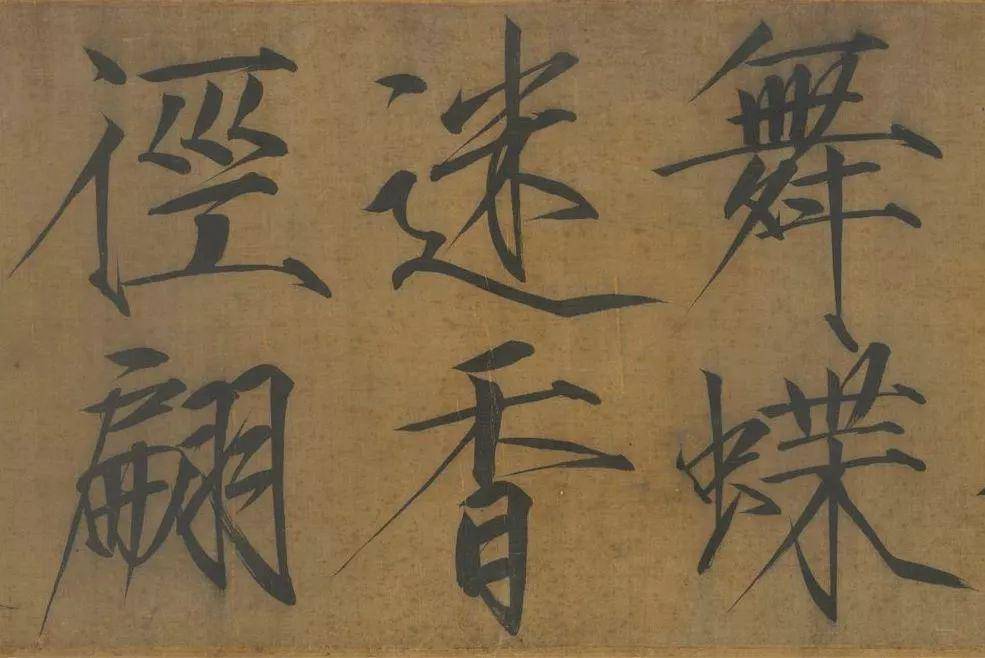 舞蝶
迷香
徑翩